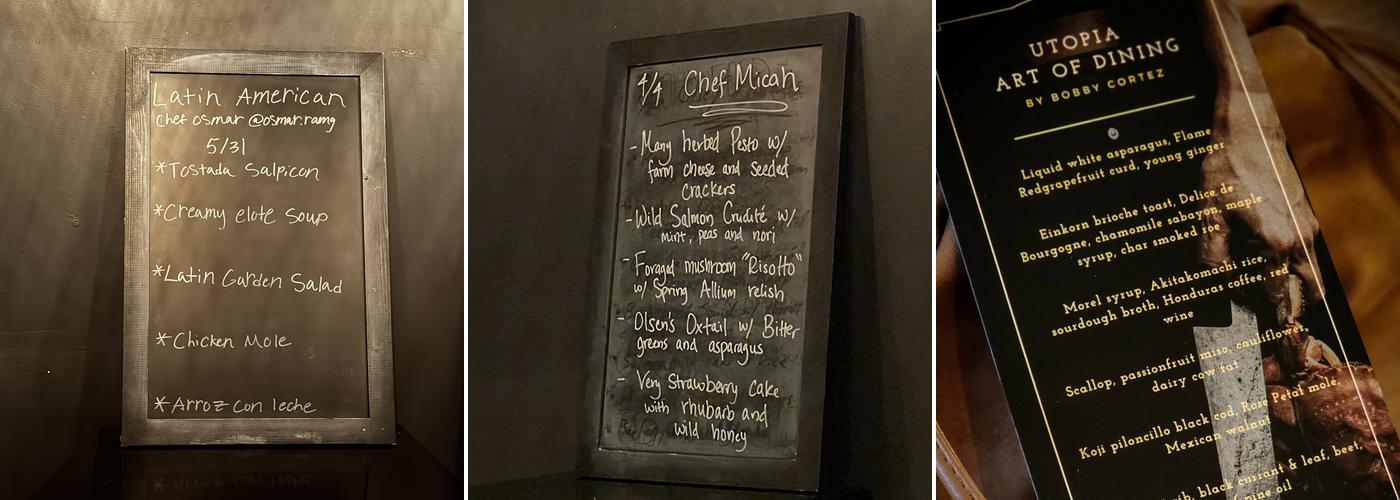 Latin American
Chef Osmar @osmar.ramg
5/31
*Tostada Salpicon
*Creamy elote Soup
*Latin Garden Salad
*Chicken Mole
*Arroz con leche
4/4 Chef Micah
- Many herbed Pesto w/
farm cheese and seeded
crackers
- Wild Salmon Crudité w/
mint, peas and nori
- Foraged mushroom "Risotto"
w/ Spring Allium relish
- Olsen's Oxtail w/ Bitter
greens and asparagus
- Very Strawberry Cake
with rhubarb and
wild honey
UTOPIA
ART OF DINING
BY BOBBY CORTEZ
Liquid white asparagus, Flame
Redgrapefruit curd, young ginger
Einkorn brioche toast, Delice de
Bourgogne, chamomile sabayon, maple
syrup, char smoked roe
Morel syrup, Akitakomachi rice,
sourdough broth, Honduras coffee, red
wine
Scallop, passionfruit miso, cauliflower,
dairy cow fat
Koji piloncillo black cod, Rose Petal mole,
Mexican walnut
black currant & leaf, beet,
oil